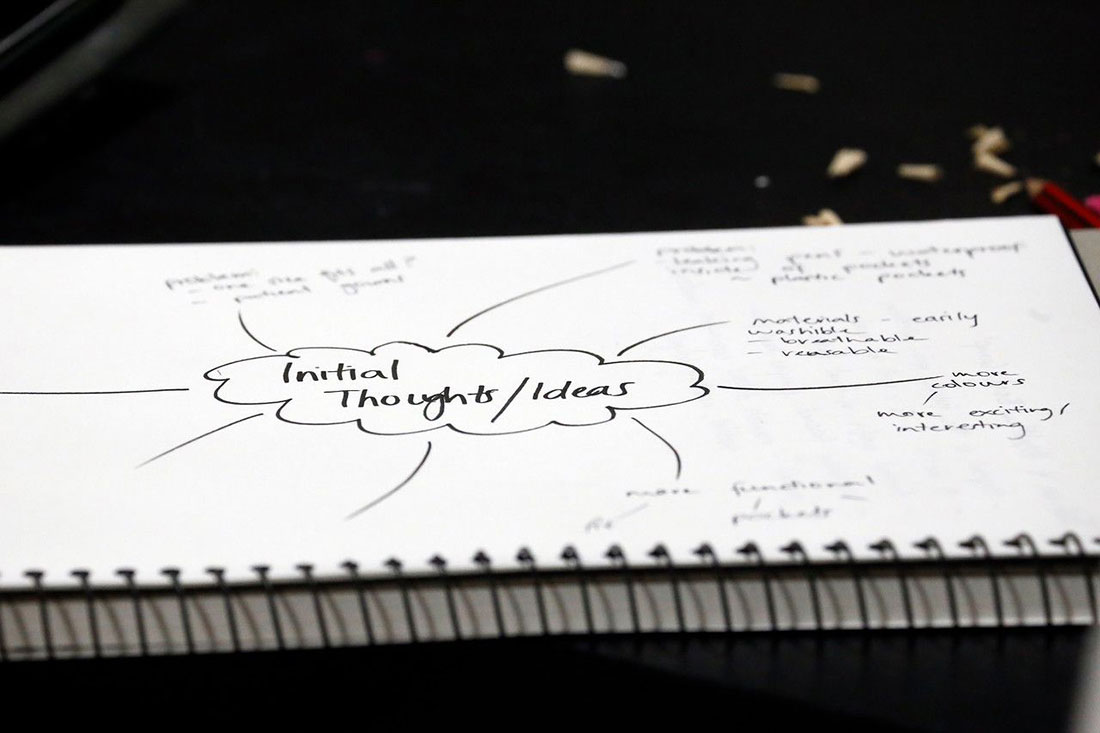 problem:
- one size fits all?
- patient gowns
problem:
leaking pens - waterproof
inside of pockets
~ plastic pockets
materials - easily
washible
- breathable
- reusable
Initial
Thoughts/Ideas
more
colours
more exciting/
interesting
more functional
pockets